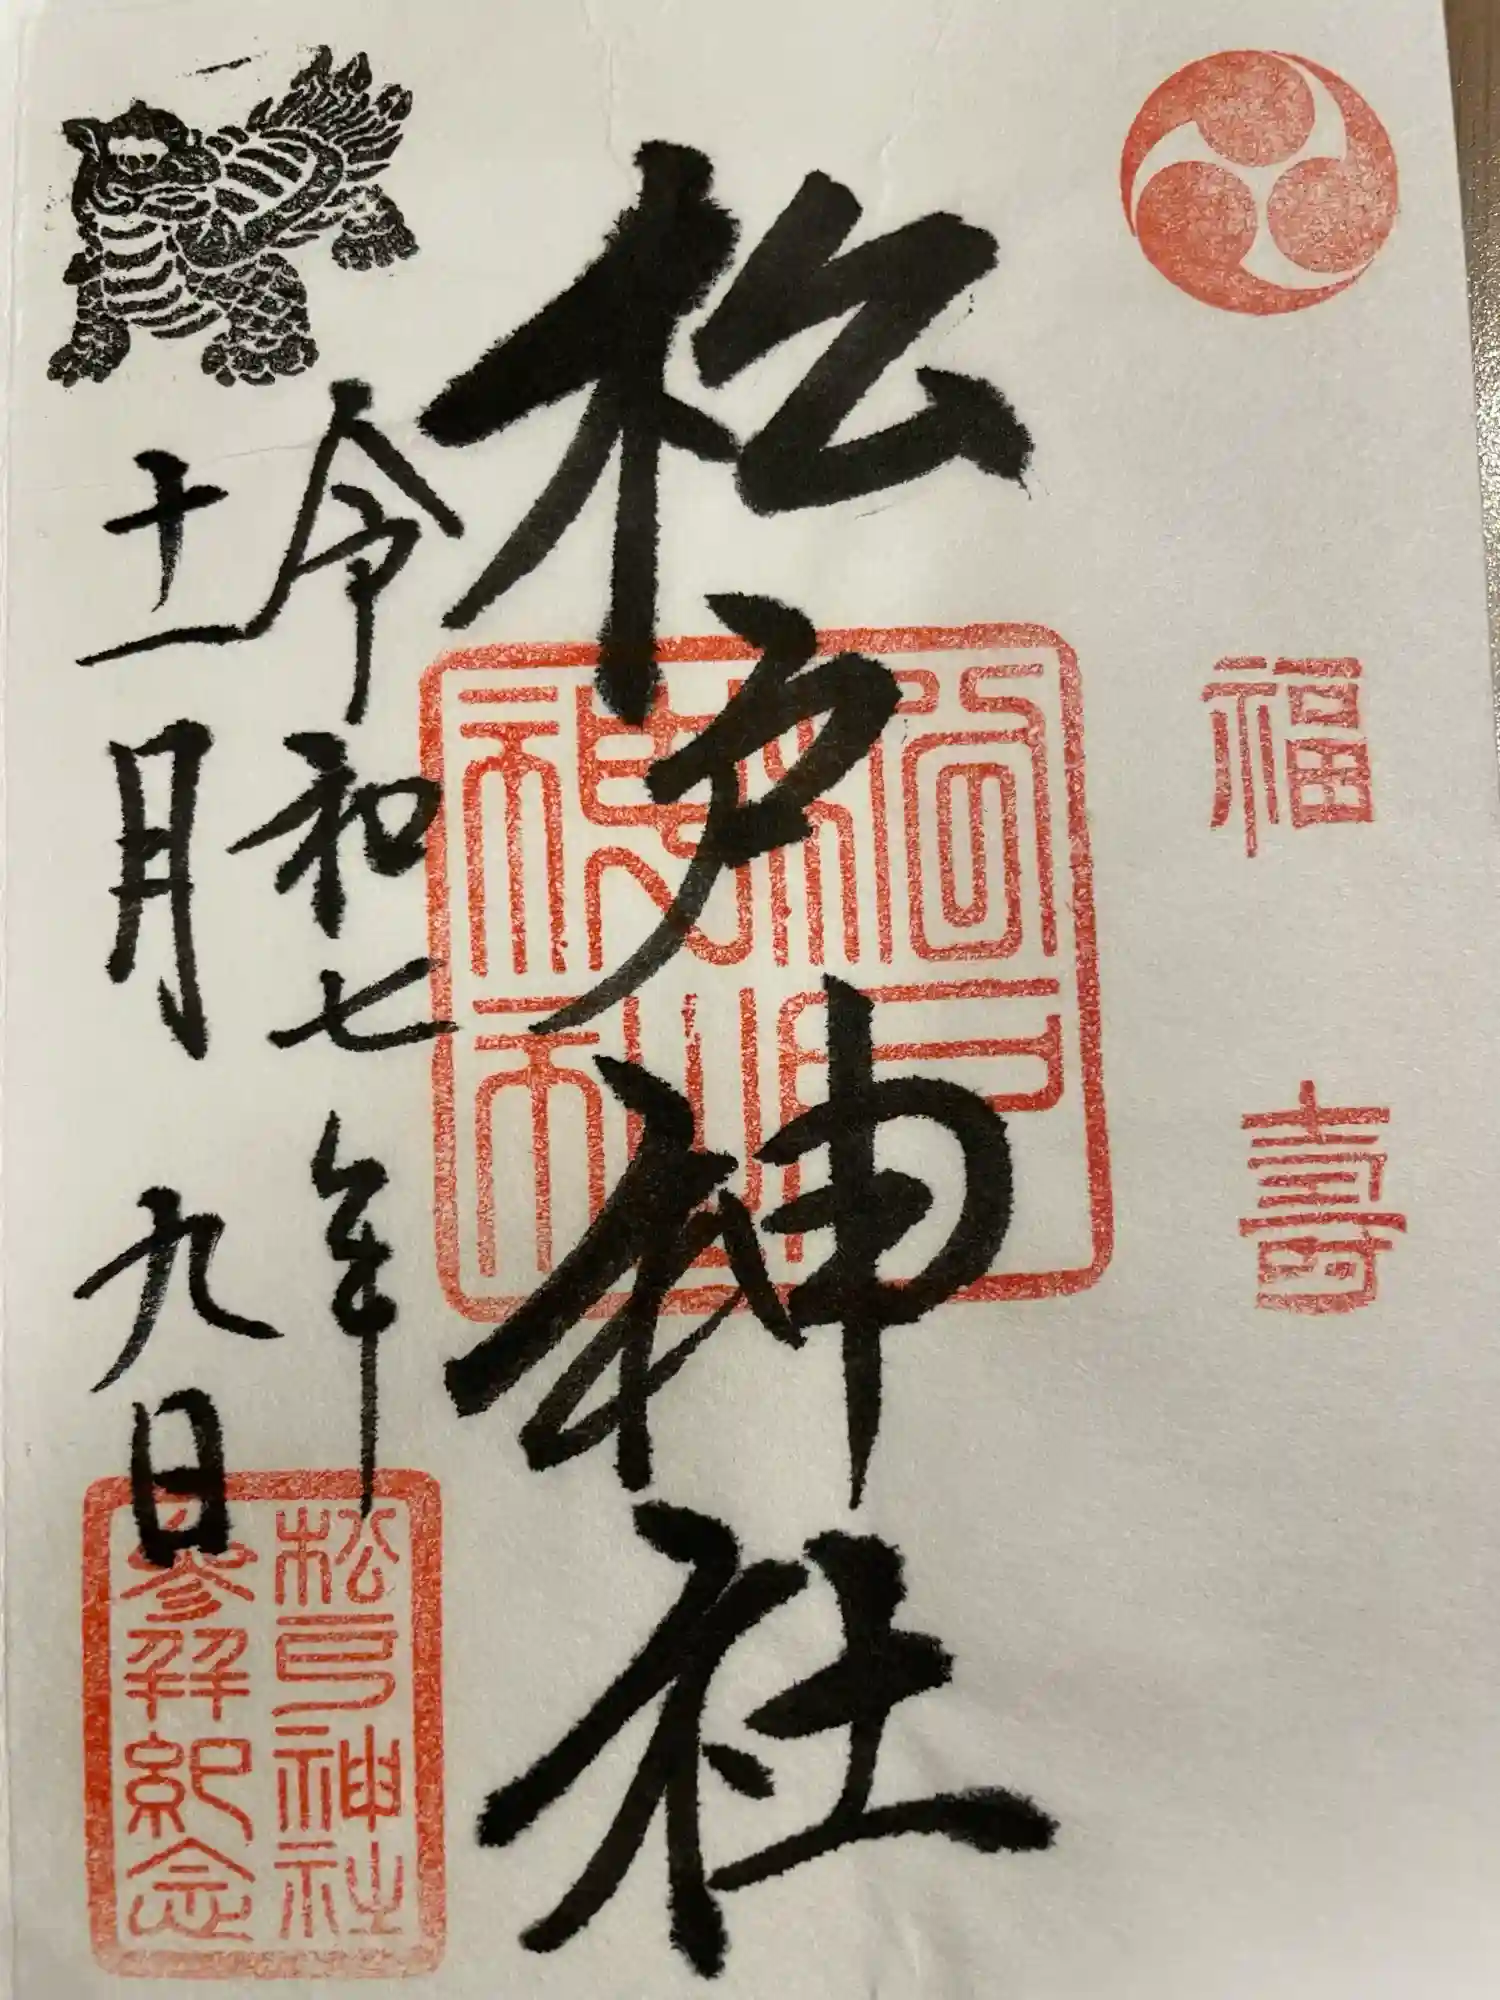 福寿
松戸神社
松戸神社
令和七年
十一月九日
松戸神社
参拝紀念